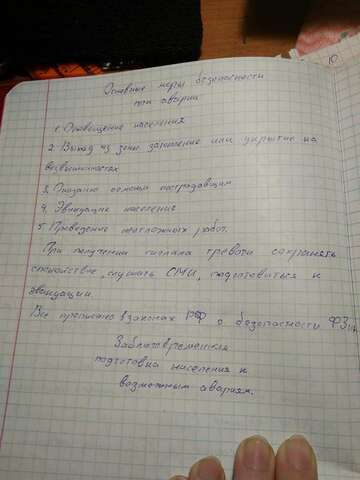 Основные меры безопасности
при аварии
1. Оповещение населения
2. Выход из зоны затопления или укрытие на
возвышенностях
3. Оказание помощи пострадавшим
4. Эвакуация населения
5. Проведение неотложных работ.
При получении сигнала тревоги сохранять
спокойствие, слушать СМИ, подготовиться к
эвакуации.
Все прописано в законах РФ о безопасности ФЗ
Заблаговременная
подготовка населения к
возможным авариям.
10